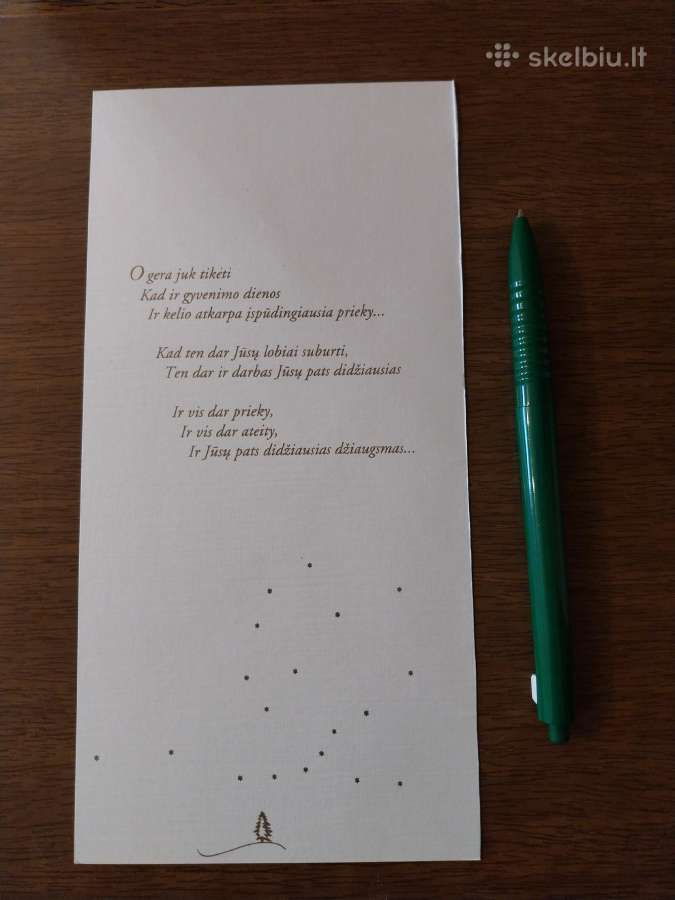 skelbiu.lt
O gera juk tikėti
Kad ir gyvenimo dienos
Ir kelio atkarpa įspūdingiausia prieky...
Kad ten dar Jūsų lobiai suburti,
Ten dar ir darbas Jūsų pats didžiausias
Ir vis dar prieky,
Ir vis dar ateity,
Ir Jūsų pats didžiausias džiaugsmas...